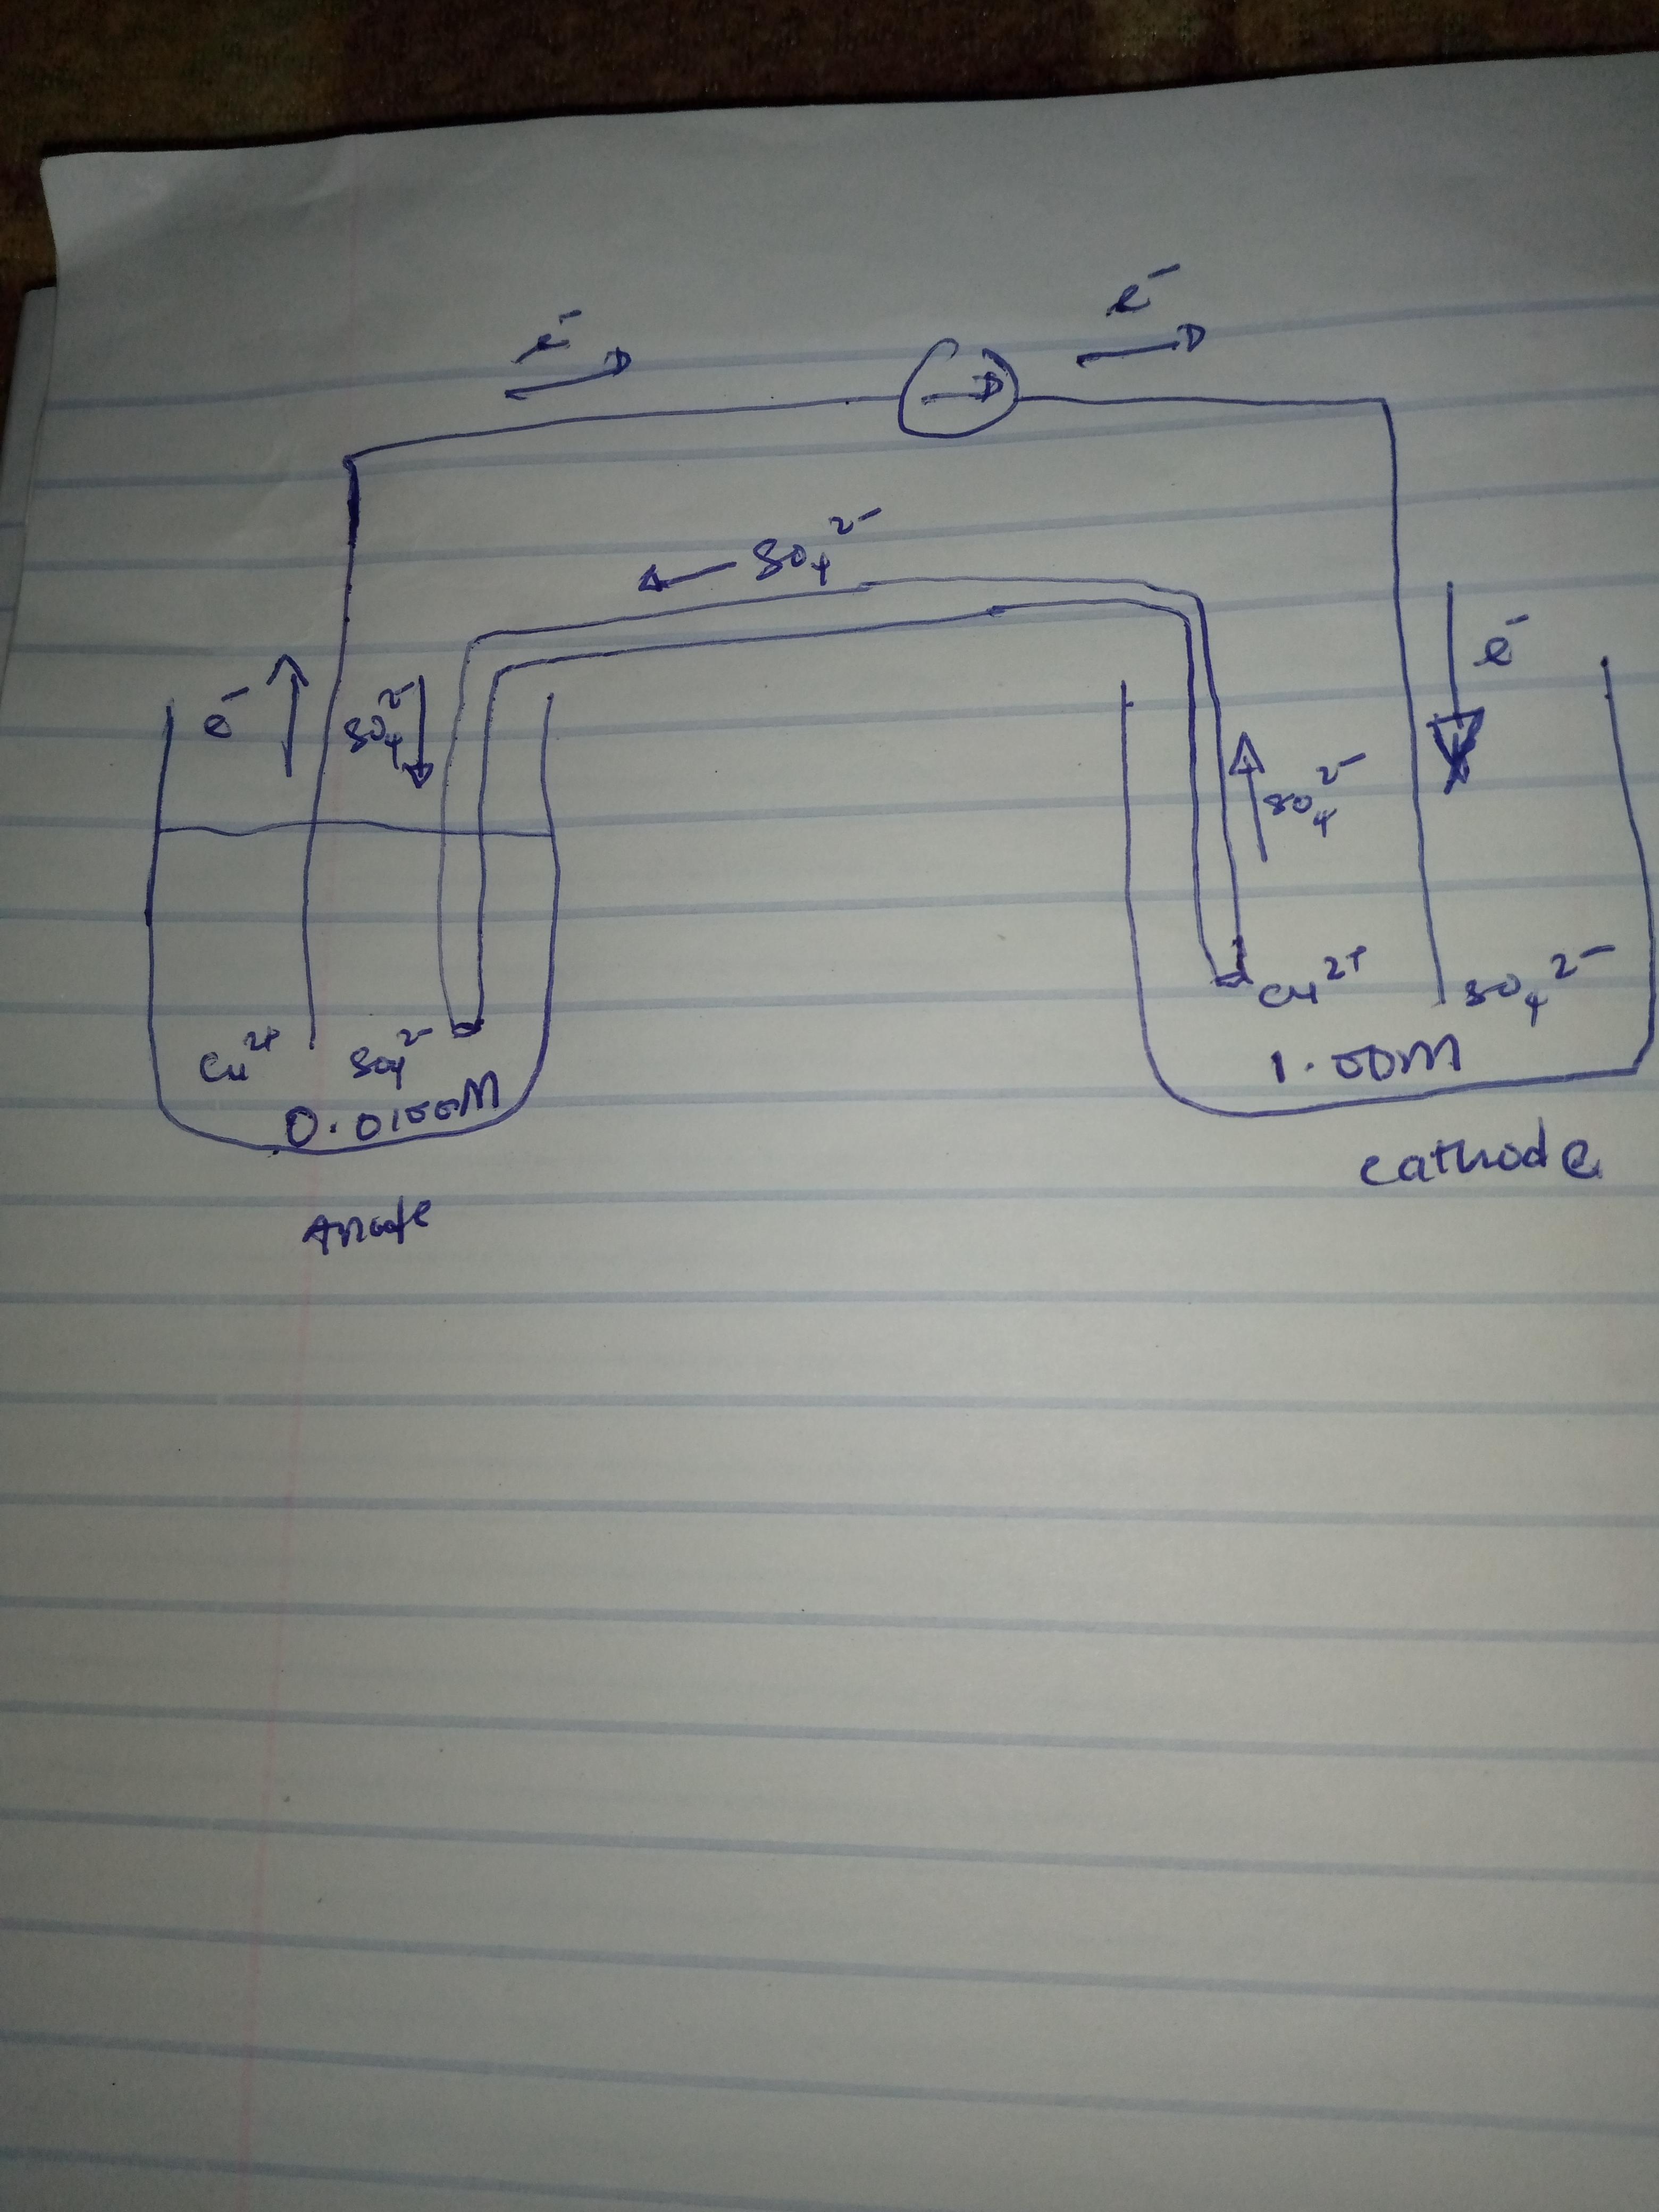 e⁻
e⁻
SO₄²⁻
e⁻
SO₄²⁻
e⁻
SO₄²⁻
Cu²⁺ SO₄²⁻
1.00M
Cu²⁺ SO₄²⁻
0.0100M
cathode
Anode